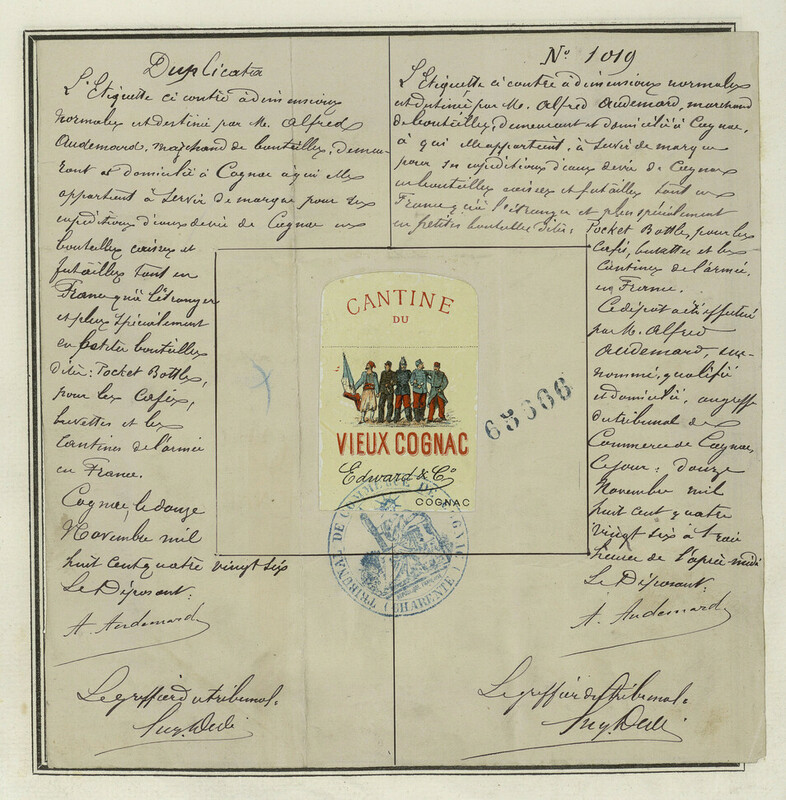 Duplicata
L'Etiquette ci contre à dimensions
normales est destiné par M. Alfred
Audemard, marchand de bouteilles, demeu-
rant et domicilié à Cognac à qui elle
appartient à servir de marque pour ses
expéditions d'eaux de vie de Cognac en
bouteilles caisses et
futailles tant en
France qu'à l'étranger
et plus spécialement
en petites bouteilles
dites: Pocket Bottles,
pour les Cafés,
buvettes et les
Cantines de l'armée
en France.
Cognac, le douze
Novembre mil
huit cent quatre vingt six
Le Déposant:
A. Audemard
Le greffier du tribunal:
No 1019
L'Etiquette ci contre à dimensions normales
est destinée par M. Alfred Audemard, marchand
de bouteilles, demeurant et domicilié à Cognac,
à qui elle appartient, à servir de marque
pour ses expéditions d'eaux de vie de Cognac
en bouteilles caisses et futailles tant en
France qu'à l'étranger et plus spécialement
en petites bouteilles dites: Pocket Bottles, pour les
Cafés, buvettes et les
Cantines de l'armée
en France.
Ce dépôt a été effectué
par M. Alfred
Audemard, sus-
nommé, qualifié
et domicilié, au greffe
du tribunal de
Commerce de Cognac,
Ce jour: douze
Novembre mil
huit cent quatre
vingt six à trois
heures de l'après midi
Le Déposant:
A. Audemard
Le greffier du tribunal:
CANTINE
DU
VIEUX COGNAC
Edward & Co
COGNAC
65606
TRIBUNAL DE COMMERCE DE COGNAC (CHARENTE)